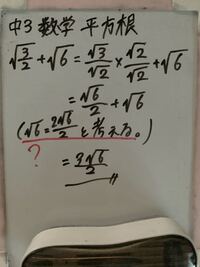 中3 数学 平方根
√3/2 + √6 = √3/√2 × √2/√2 + √6
= √6/2 + √6
(√6 = 2√6/2 と考える。)
?
= 3√6/2